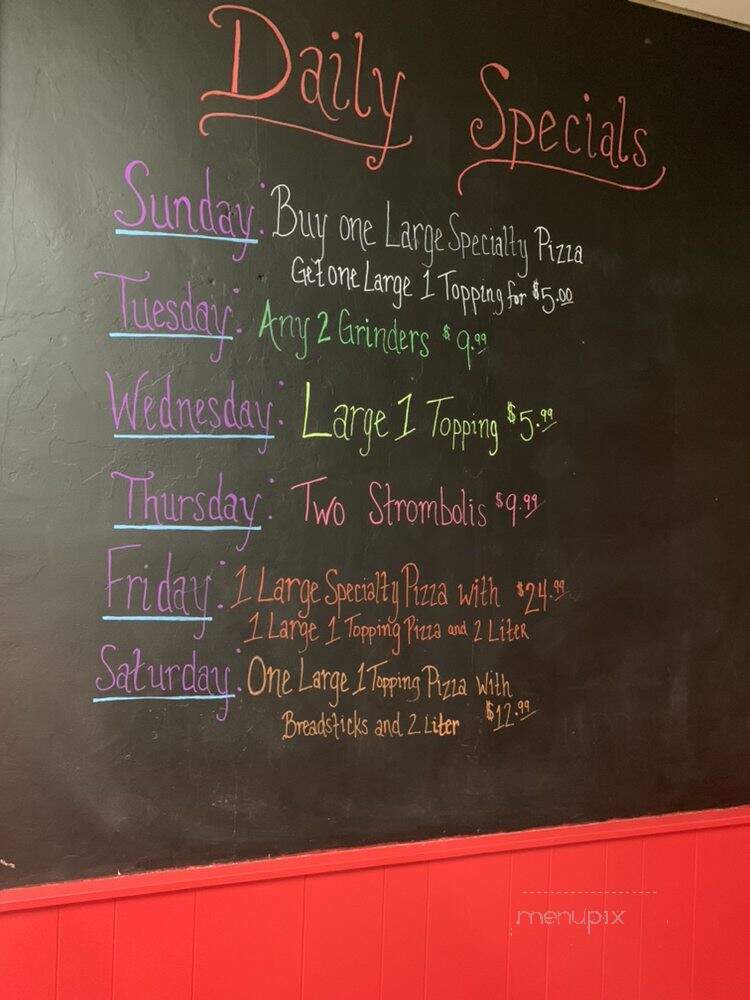 Daily Specials
Sunday: Buy one Large Specialty Pizza
Get one Large 1 Topping for $5.00
Tuesday: Any 2 Grinders $9.99
Wednesday: Large 1 Topping $5.99
Thursday: Two Strombolis $9.99
Friday: 1 Large Specialty Pizza with $24.99
1 Large 1 Topping Pizza and 2 Liter
Saturday: One Large 1 Topping Pizza with
Breadsticks and 2 Liter $12.99
menupix